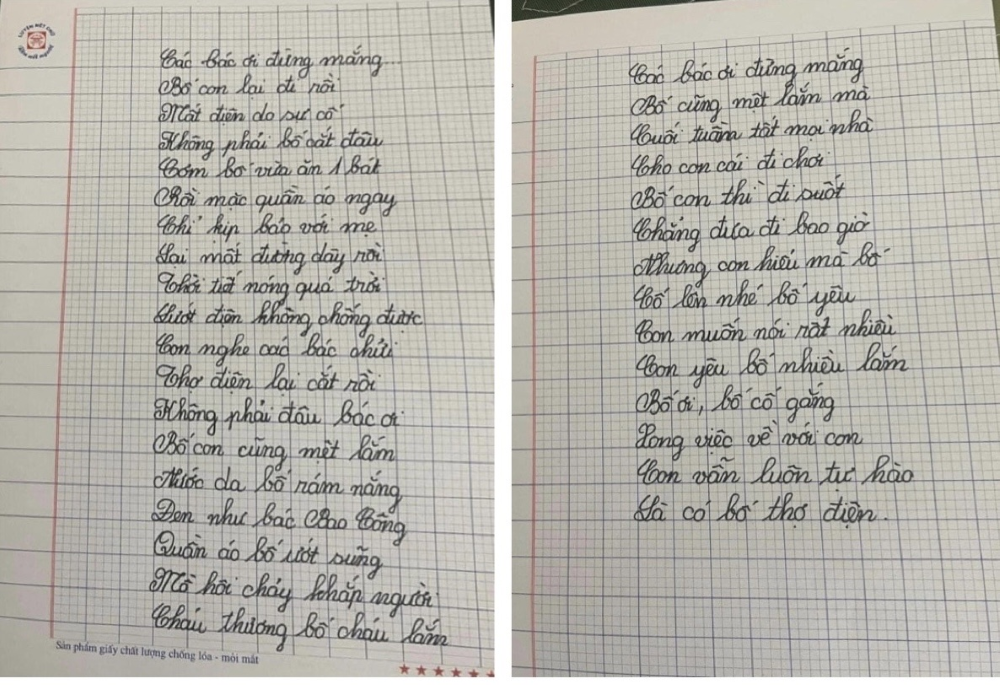 LUYỆN VIẾT CHỮ
Các bác ơi đừng mắng...
Bố con lại đi rồi
Mất điện do sự cố
Không phải bố cắt đâu
Cơm bố vừa ăn 1 bát
Rồi mặc quần áo ngay
Chỉ kịp bảo với mẹ
Lại mất đường dây rồi
Thời tiết nóng quá trời
Lưới điện không chống được
Con nghe các bác chửi
Thợ điện lại cắt rồi
Không phải đâu bác ơi
Bố con cũng mệt lắm
Nước da bố rám nắng
Đen như bác Bao Công
Quần áo bố ướt sũng
Mồ hôi chảy khắp người
Cháu thương bố cháu lắm
Sản phẩm giấy chất lượng chống lóa - mỏi mắt
Các bác ơi đừng mắng
Bố cũng mệt lắm mà
Cuối tuần tất mọi nhà
Cho con cái đi chơi
Bố con thì đi suốt
Chẳng đưa đi bao giờ
Nhưng con hiểu mà bố
Cố lên nhé bố yêu
Con muốn nói rất nhiều
Con yêu bố nhiều lắm
Bố ơi, bố cố gắng
Xong việc về với con
Con vẫn luôn tự hào
Là có bố thợ điện.